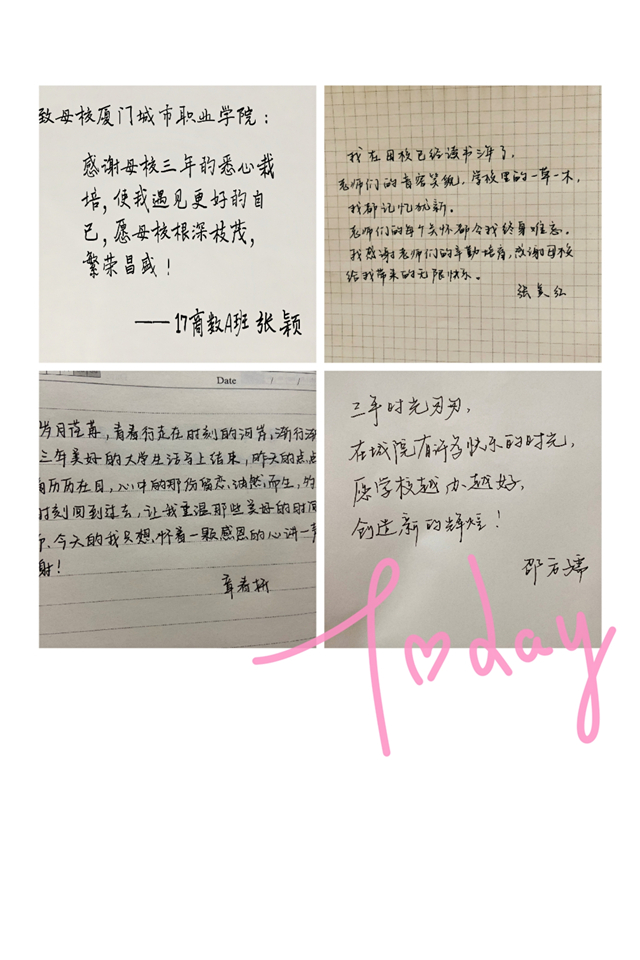 致母校厦门城市职业学院：
感谢母校三年的悉心栽
培，使我遇见更好的自
己，愿母校根深枝茂，
繁荣昌盛！
——17商数A班 张颖
我在母校已经读书三年了，
老师们的音容笑貌，学校里的一草一木，
我都记忆犹新。
老师们的每个关怀都令我终身难忘。
我感谢老师们的辛勤培育，感谢母校
给我带来的无限快乐。
张美红
Date / /
岁月荏苒，青春行走在时刻的河岸，渐行渐
三年美好的大学生活马上结束，昨天的点点
历历在目，心中的那份留恋油然而生，
时刻回到过去，让我重温那些美好的时间
今天的我只想怀着一颗感恩的心讲一声
谢！
章春妍
三年时光匆匆，
在城院有许多快乐的时光，
愿学校越办越好，
创造新的辉煌！
邵
Today